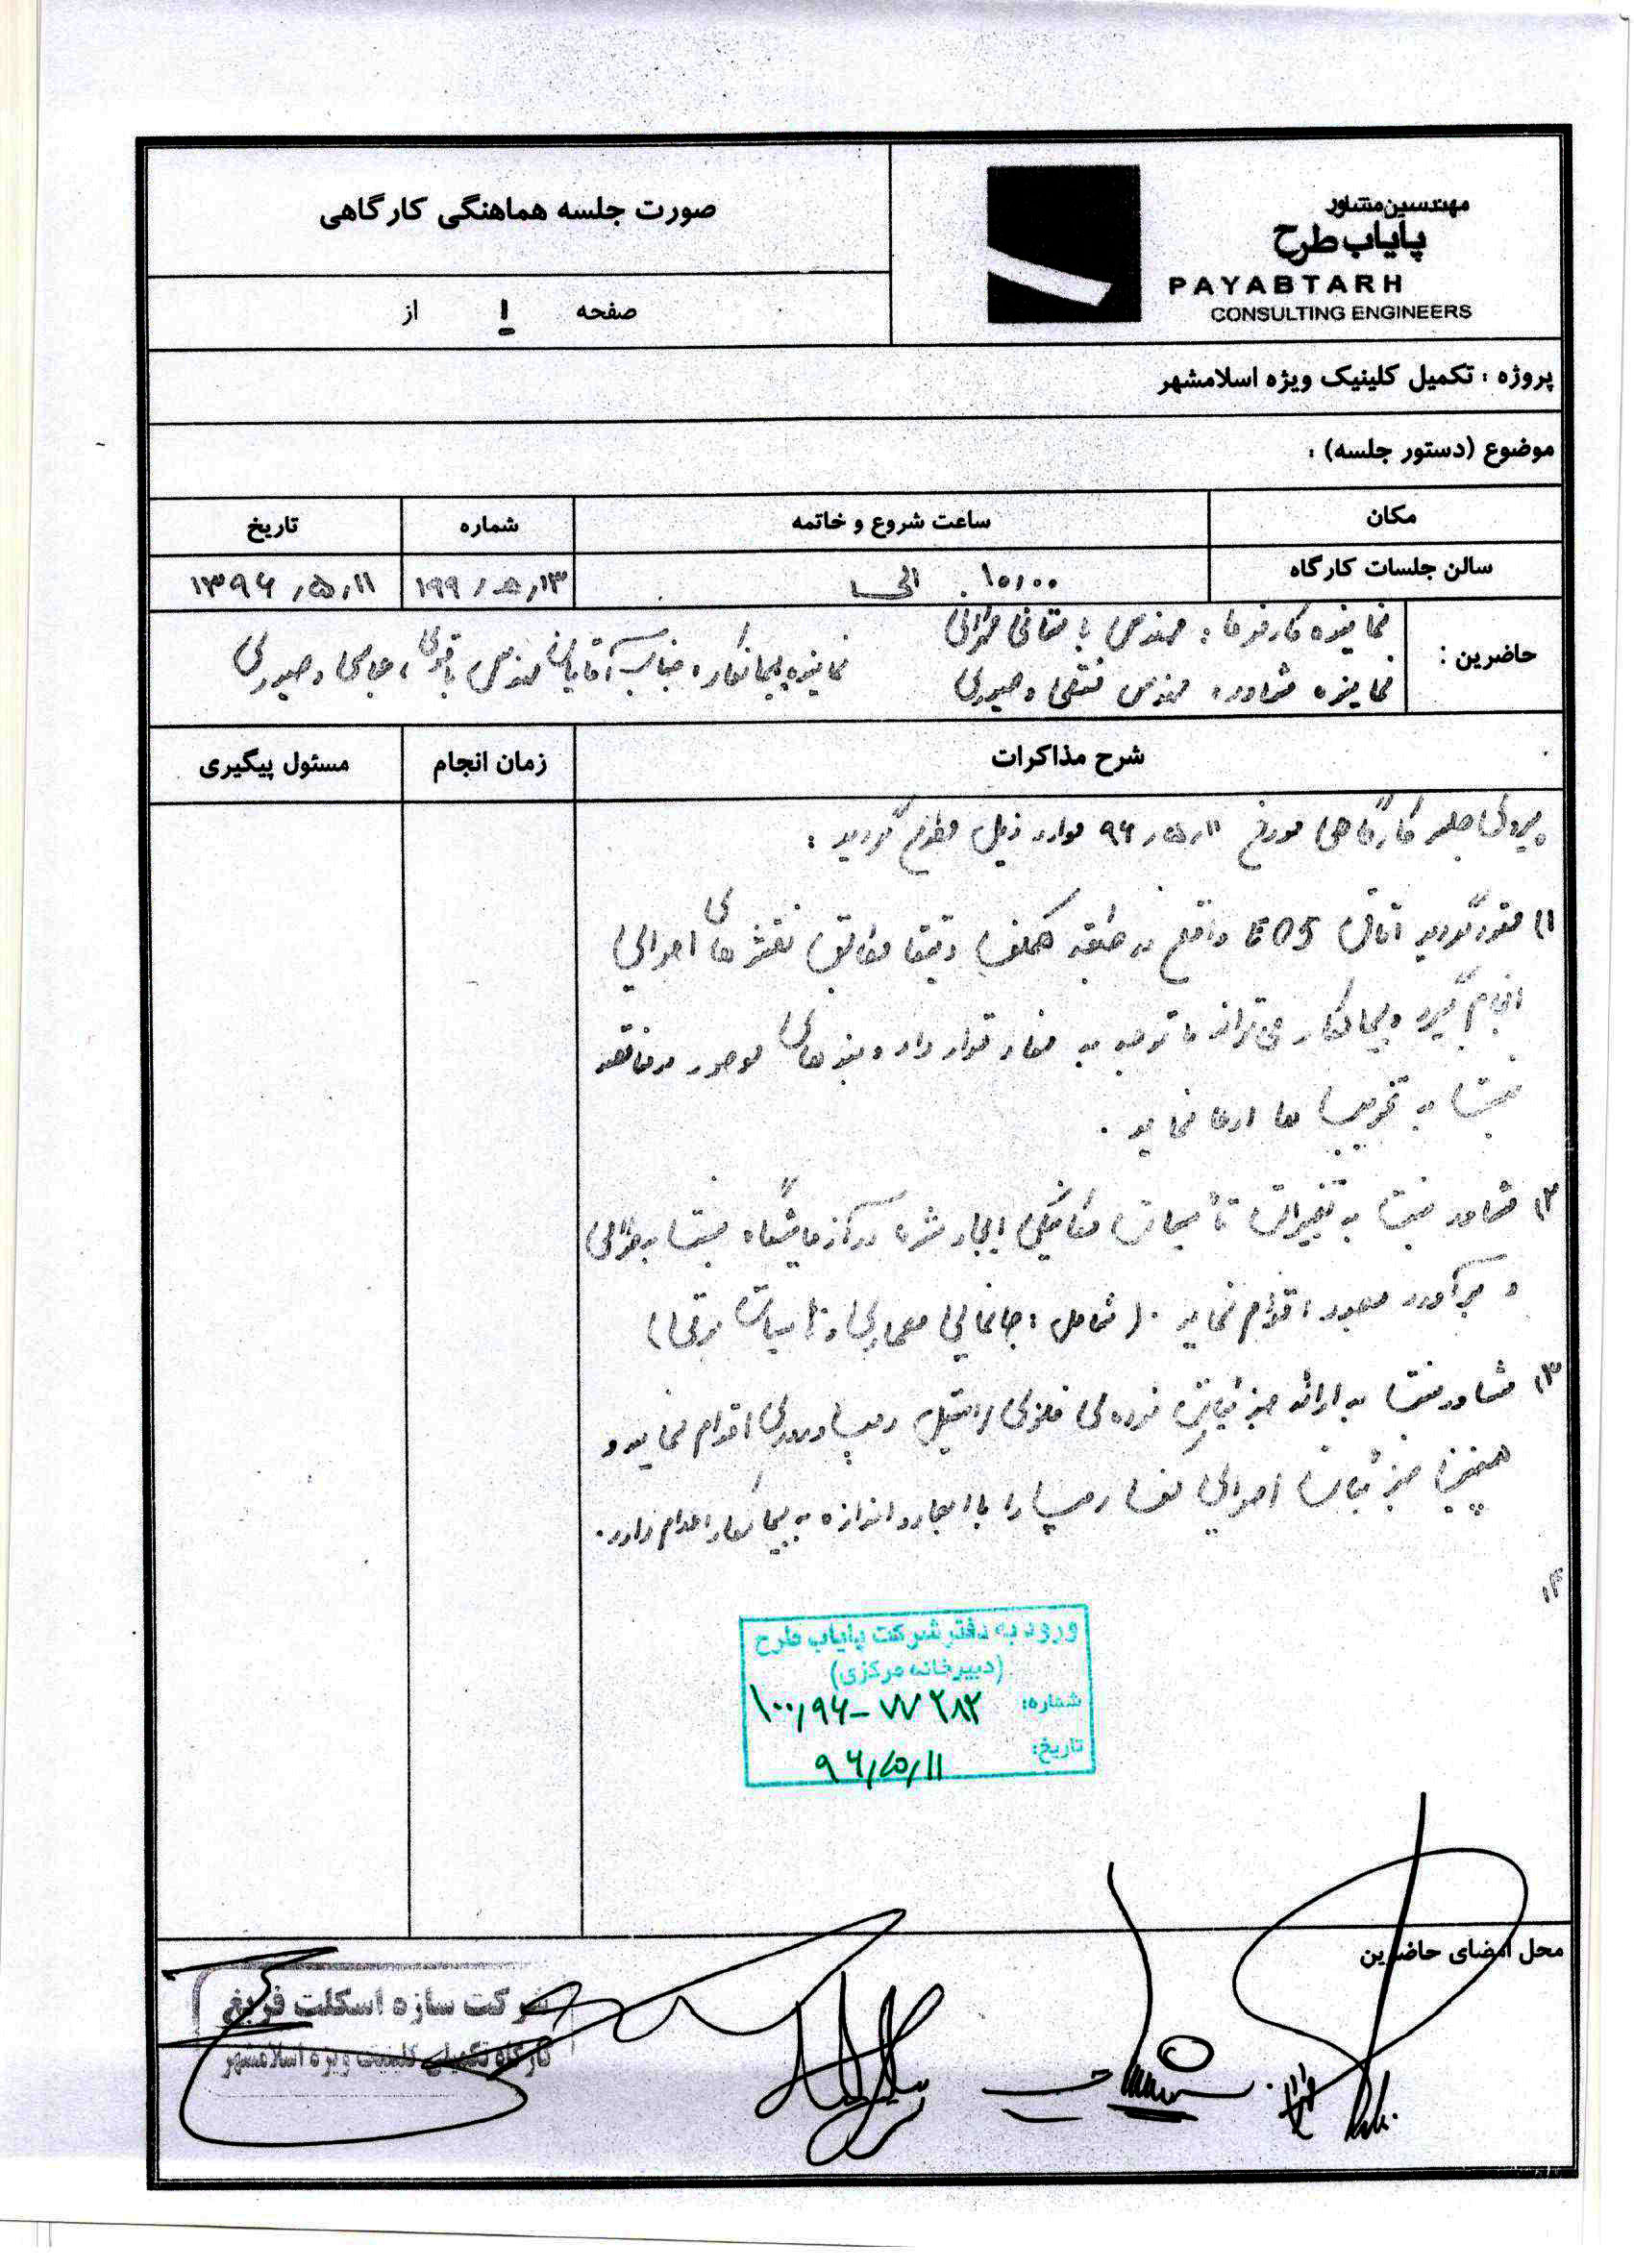 مهندسین مشاور
پایاب طرح
PAYABTARH
CONSULTING ENGINEERS
صورت جلسه هماهنگی کارگاهی
صفحه ۱ از
پروژه : تکمیل کلینیک ویژه اسلامشهر
موضوع (دستور جلسه) :
مکان ساعت شروع و خاتمه شماره تاریخ
سالن جلسات کارگاه ۱۰,۰۰ الی ۱۳٫۵٫۱۹۹ ۱۳۹۶٫۵٫۱۱
حاضرین :
نماینده کارفرما : مهندس
نماینده مشاور : مهندس
نماینده پیمانکار : جناب آقایان مهندس
شرح مذاکرات زمان انجام مسئول پیگیری
پیروی جلسه کارگاهی مورخ ۹۶٫۵٫۱۱ موارد ذیل مطرح گردید :
۱) مقرر گردید اتاق واقع در طبقه همکف دقیقا مطابق نقشه های اجرایی
انجام گیرد و پیمانکار می تواند با توجه به مفاد قرارداد و بندهای موجود در مناقصه
نسبت به تخریب ها ادعا نماید .
۲) مشاور نسبت به تغییرات تأسیسات مکانیکی ایجاد شده در آزمایشگاه نسبت به طراحی
و برآورد مجدد اقدام نماید . (شامل : جانمایی معماری و تاسیسات برقی)
۳) مشاور نسبت به ارائه جزئیات نرده ی فلزی استیل رمپ ورودی اقدام نماید و
همچنین جزئیات اجرایی کف رمپ را با ابعاد و اندازه به پیمانکار اعلام دارد .
۴)
ورود به دفتر شرکت پایاب طرح
(دبیرخانه مرکزی)
شماره: ۱۰۰٫۹۶-۷۷۲۸۲
تاریخ: ۹۶٫۵٫۱۱
محل امضای حاضرین
شرکت سازه اسکلت
کارگاه تکمیلی کلینیک ویژه اسلامشهر